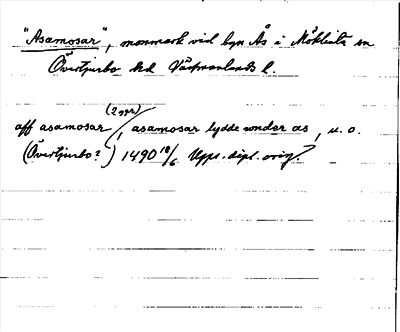 "Asamosar", mosmark vid byn Ås i Möklinta sn
Övertjurbo hd Västmanlands l.
(2 ggr)
aff asamosar, asamosar lydde wnder as, u.o.
(Övertjurbo?) 1490 18/6 Upps. dipl. orig.